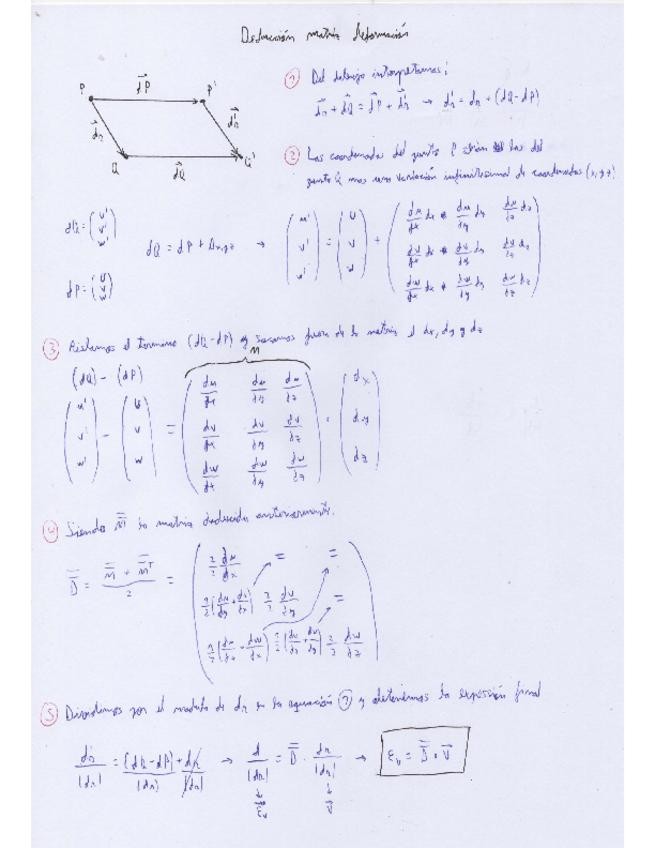 Deducción matriz deformación
P
dP
P'
dr
dr'
Q
dQ
Q'
① Del dibujo interpretamos:
dr + dQ = dP + dr' → dr' = dr + (dQ - dP)
② Las coordenadas del punto P serán las del
punto Q mas una variación infinitesimal de coordenadas (x, y, z)
dQ = (u' v' w')
dP = (u v w)
dQ = dP + Δx,y,z → (u' v' w') = (u v w) +
du/dx dx du/dy dy du/dz dz
dv/dx dx dv/dy dy dv/dz dz
dw/dx dx dw/dy dy dw/dz dz
③ Aislamos el termino (dQ - dP) y sacamos fuera de la matriz el dx, dy y dz
M
(dQ) - (dP)
(u' v' w') - (u v w) =
du/dx du/dy du/dz
dv/dx dv/dy dv/dz
dw/dx dw/dy dw/dz
· (dx dy dz)
④ Siendo M la matriz deducida anteriormente.
D = (M + M^T)/2 =
du/dx = =
(du/dy + dv/dx) dv/dy =
(du/dz + dw/dx) (dv/dz + dw/dy) dw/dz
⑤ Dividimos por el modulo de dr en la equación ① y obtenemos la expresión final
dr'/|dr| = (dQ - dP)/|dr| + dr/|dr| → d/|dr| = D · dr/|dr| → εv = D · v
εv
v